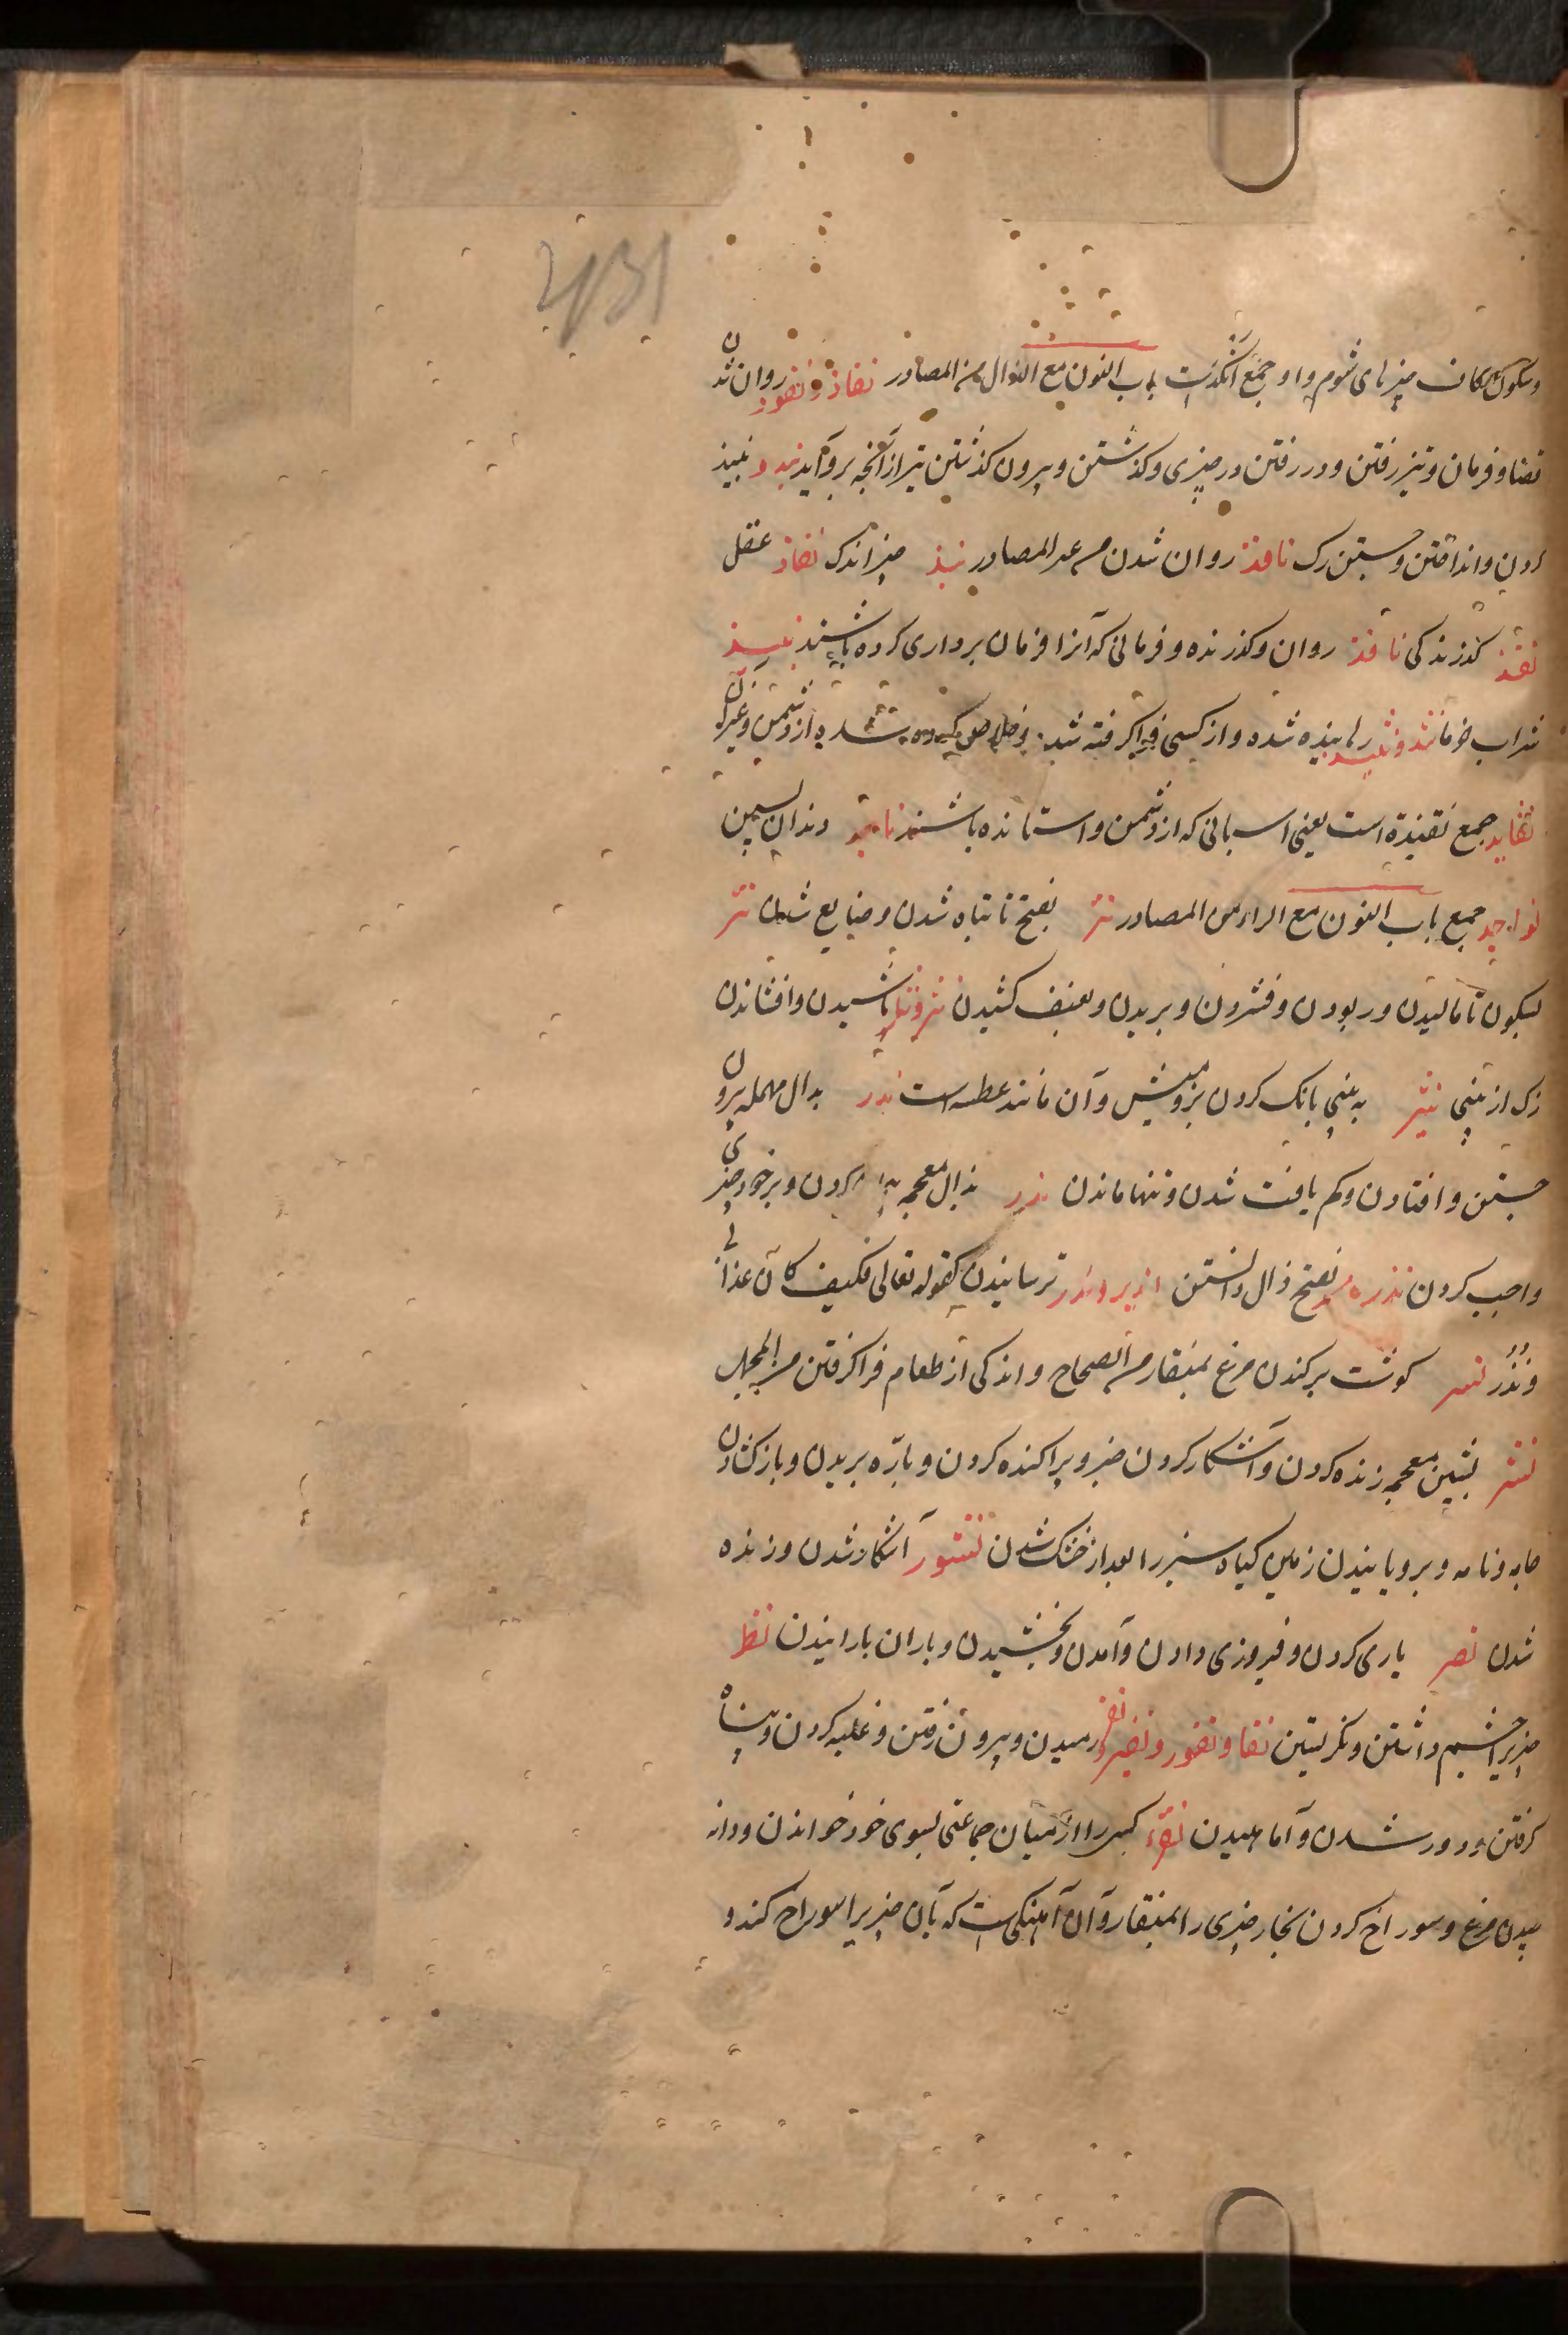 431
وسکون کاف چیزهای شوم و او جمع انکدست باب النون مع الذال من المصادر نفاذ و نفوذ روان شدن
قضا و فرمان و تیز رفتن و در رفتن در چیزی و کذشتن و بیرون کذشتن تیر از آنچه برو آید نبذ و نبیذ
کردن و انداختن و جستن رک نافذ روان شدن من غیر المصادر نبذ چیز اندک نفاذ عقل
نفذ کذرندکی نافذ روان و کذرنده و فرمانی که آنرا فرمان برداری کرده باشند نبیذ
شراب خرما نقذ و نقیذ رهانیده شده و از کسی فرا کرفته شده و خلاص کرده شده از دشمن و غیر آن
نقاید جمع نقیذة است یعنی اسبانی که از دشمن واستانده باشند ناجذ دندان پسین
نواجذ جمع باب النون مع الراء من المصادر نتر بفتح تا تباه شدن و ضایع شدن نتر
بسکون تا مالیدن و ربودن و فشردن و بریدن و بعنف کشیدن نثر و نثار پاشیدن و افشاندن
زک از بینی نثیر به بینی بانک کردن بز و میش و آن مانند عطسه است ندر بدال مهمله بیرون
جستن و افتادن و کم یافت شدن و تنها ماندن نذر بذال معجمه کردن و بر خود چیزی
واجب کردن نذره بفتح ذال دانستن نذیر و نذر ترسانیدن کقوله تعالی فکیف کان عذابی
ونذر نسر کوشت برکندن مرغ بمنقار من الصحاح و اندکی از طعام فرا کرفتن من المجمل
نشر بشین معجمه زنده کردن و آشکار کردن خبر و پراکنده کردن و بارّه بریدن و باز کشادن
جامه و نامه و برویانیدن زمین کیاه سبز را بعد از خشک شدن نشور آشکار شدن و زنده
شدن نصر یاری کردن و فیروزی دادن و آمدن و بخشیدن و باران بارانیدن نظر
چیزیرا چشم داشتن و نکریستن نفار و نفور و نفیر و نفر رمیدن و بیرون رفتن و غلبه کردن و پناه
کرفتن و دور شدن و آماهیدن نقر کسی را از میان جماعتی بسوی خود خواندن و دانه
چیدن مرغ و سوراخ کردن نجار چیزی را بمنقار و آن آهنکی است که بآن چیزیرا سوراخ کند و